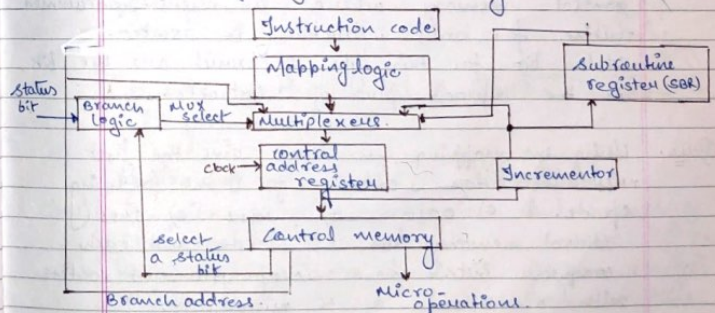 Instruction code
Mapping logic
Subroutine
register (SBR)
status
bit
Branch
logic
MUX
select
Multiplexers.
clock
control
address
register
Incrementor
select
a status
bit
Control memory
Branch address.
Micro-
operations.